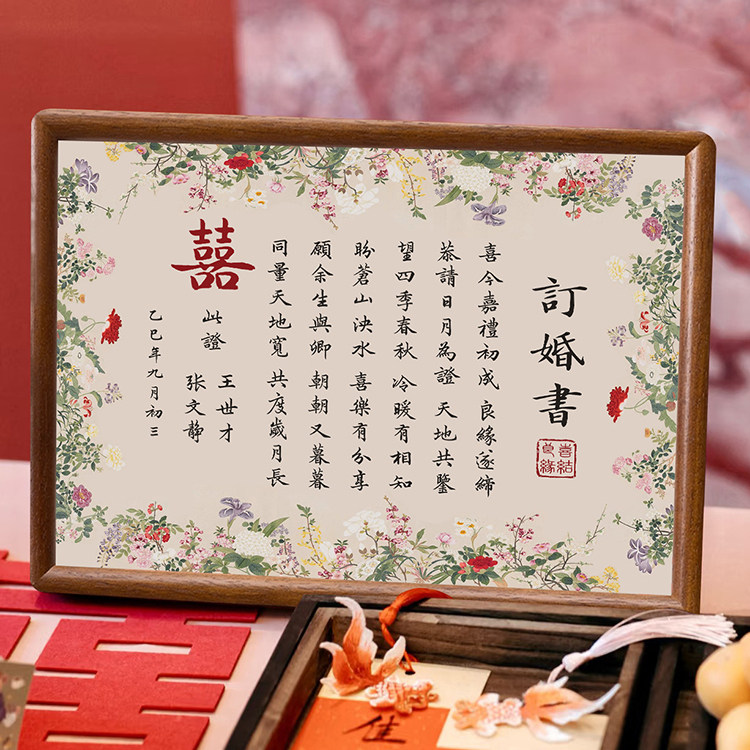 訂婚書
喜結良緣
喜今嘉禮初成 良緣遂締
恭請日月為證 天地共鑒
望四季春秋 冷暖有相知
盼蒼山泱水 喜樂有分享
願余生與卿 朝朝又暮暮
同量天地寬 共度歲月長
囍
此證
王世才
张文静
乙巳年九月初三
佳